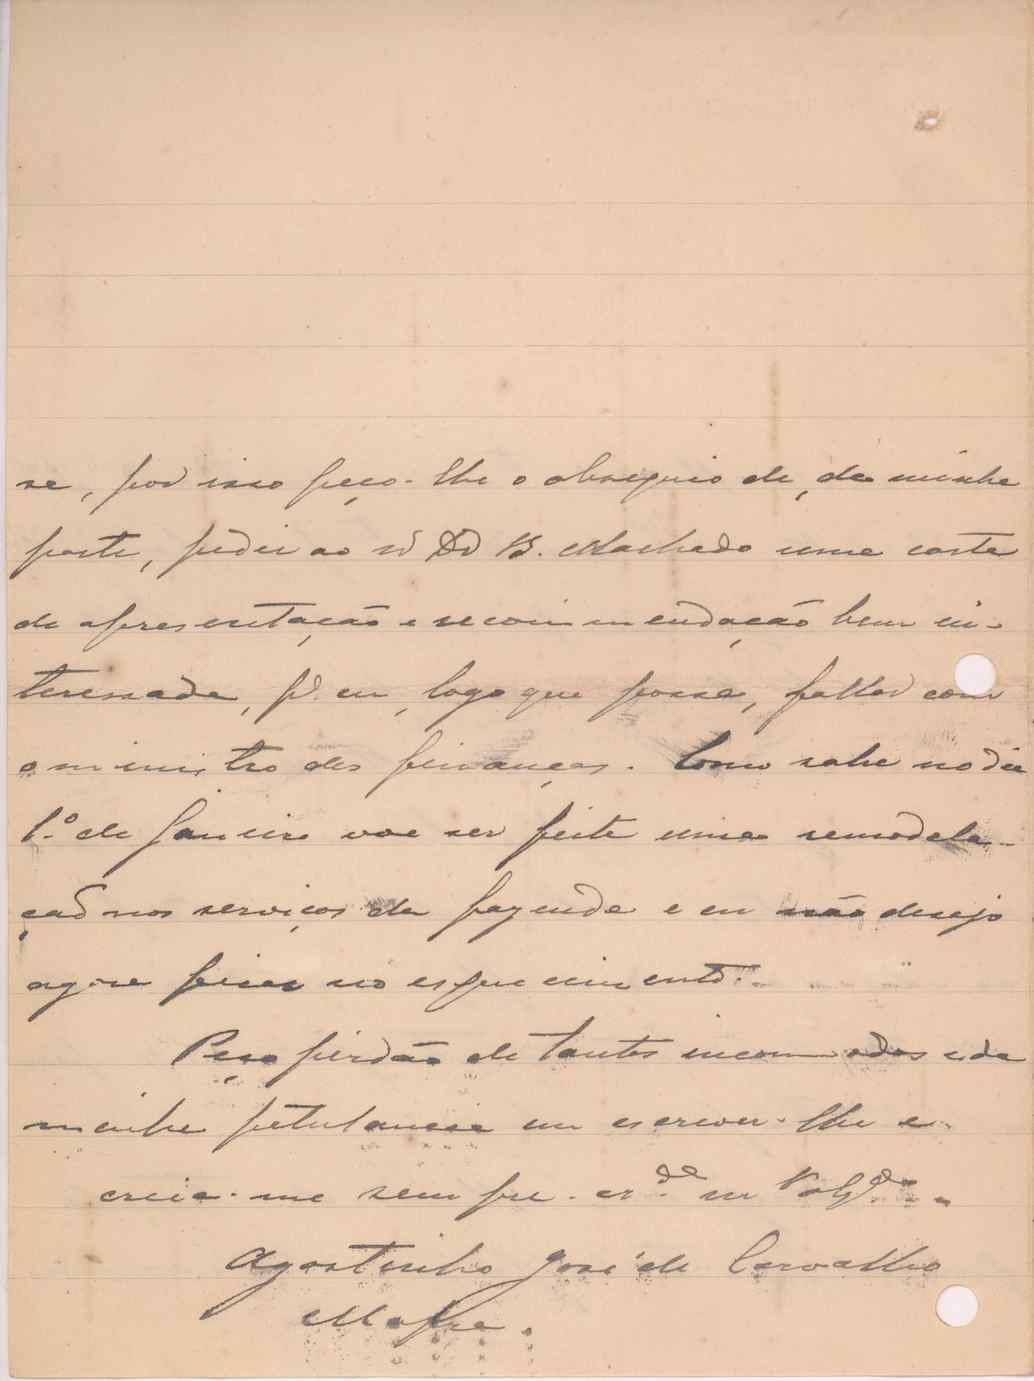 se, por isso peço-lhe o obsequio de, da minha
parte, pedir ao sr Dr B. Machado uma carta
de apresentação e recommendação bem in-
teressada, pª eu, logo que possa, fallar com
o ministro das finanças. Como sabe no dia
1.º de Janeiro vae ser feita uma remodela-
ção nos serviços da fazenda e eu não desejo
agora ficar no esquecimento.
Peço perdão de tantos incommodos e da
minha petulancia em escrever-lhe e
creia-me sempre. cr.do m
Agostinho José de Carvalho
Mafra.